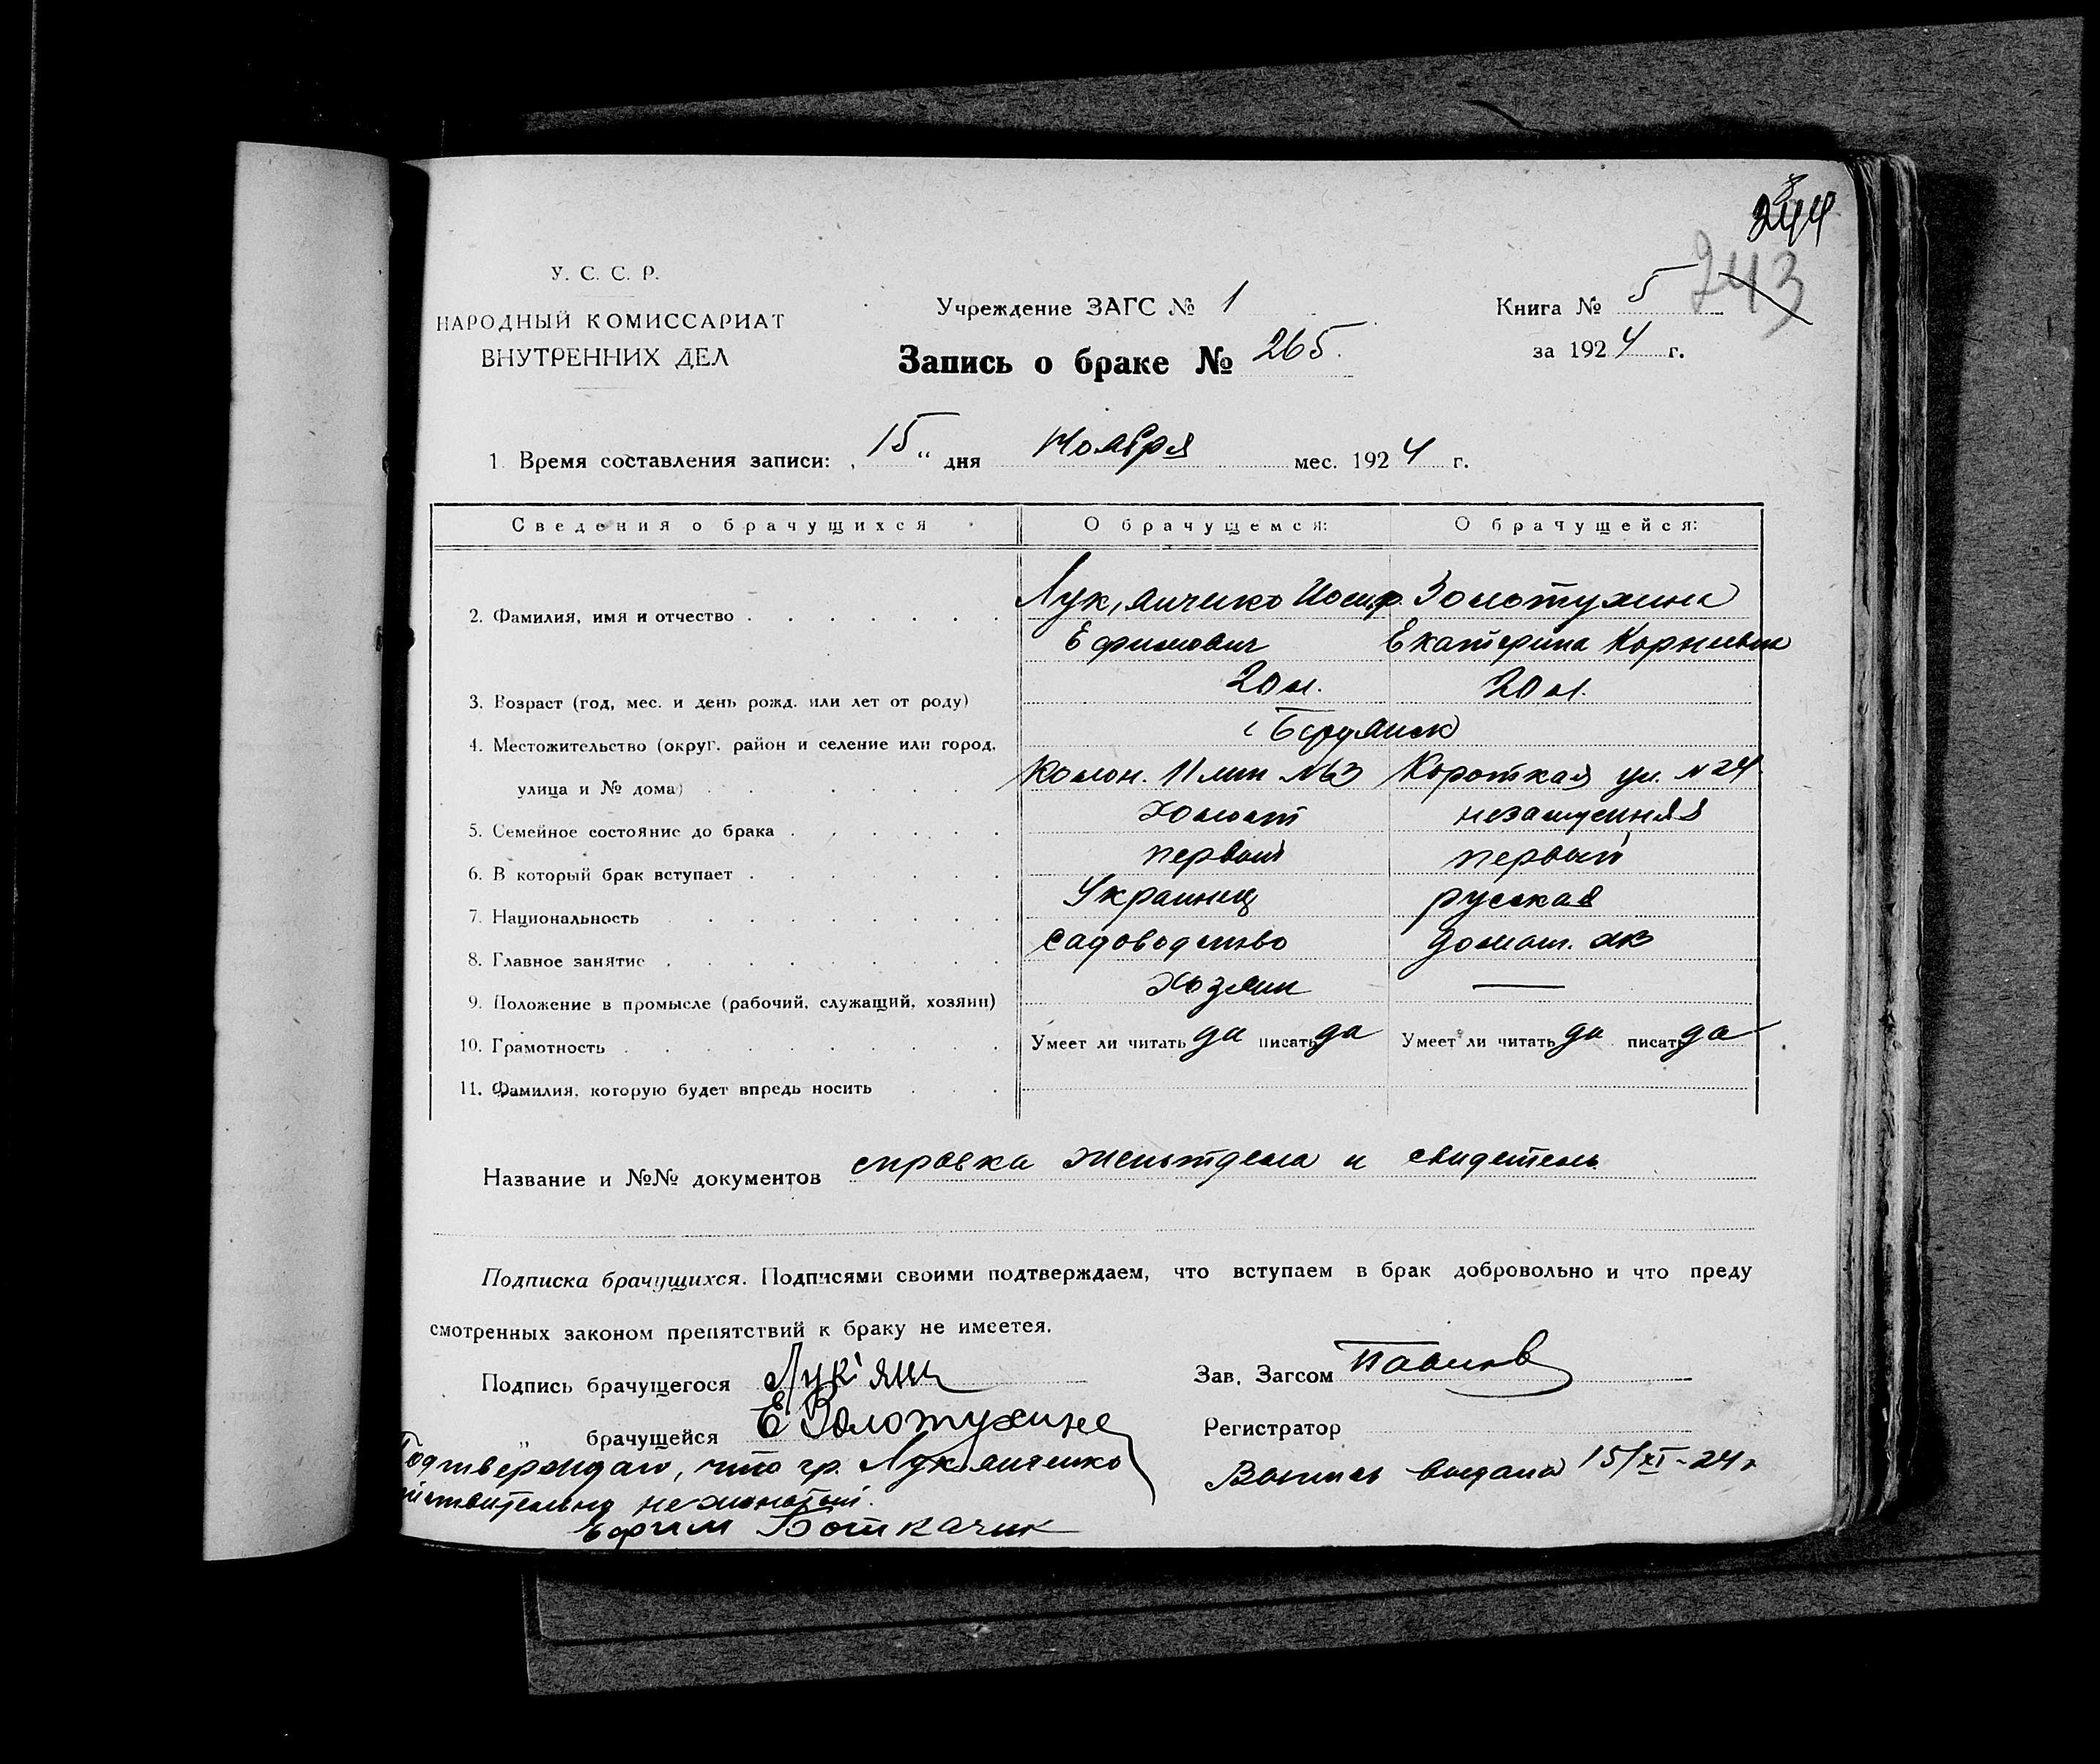 244
243
У. С. С. Р.
НАРОДНЫЙ КОМИССАРИАТ
ВНУТРЕННИХ ДЕЛ
Учреждение ЗАГС № 1
Запись о браке № 265.
Книга № 5
за 1924 г.
1. Время составления записи: „15“ дня Ноября мес. 1924 г.
Сведения о брачущихся О брачущемся: О брачущейся:
2. Фамилия, имя и отчество Лук,янченко Иосиф. Золотухина
Ефимович Екатерина Корниевна
3. Возраст (год, мес. и день рожд. или лет от роду) 20 л. 20 л.
4. Местожительство (округ, район и селение или город, Бердянск
улица и № дома) Колон. 11 лин №3 Короткая ул. №24
5. Семейное состояние до брака холост незамужняя
6. В который брак вступает первый первый
7. Национальность Украинец русская
8. Главное занятие садоводство домаш. хоз
9. Положение в промысле (рабочий, служащий, хозяин) хозяин —
10. Грамотность Умеет ли читать да писать да Умеет ли читать да писать да
11. Фамилия, которую будет впредь носить
Название и №№ документов справка и свидетель
Подписка брачущихся. Подписями своими подтверждаем, что вступаем в брак добровольно и что преду
смотренных законом препятствий к браку не имеется.
Подпись брачущегося Лук'ян
Зав. Загсом
„ брачущейся Е Золотухина
Регистратор
Подтверждаю, что гр. Лукьянченко
действительно не женатый.
Ефим
Выпись выдана 15/XI-24г